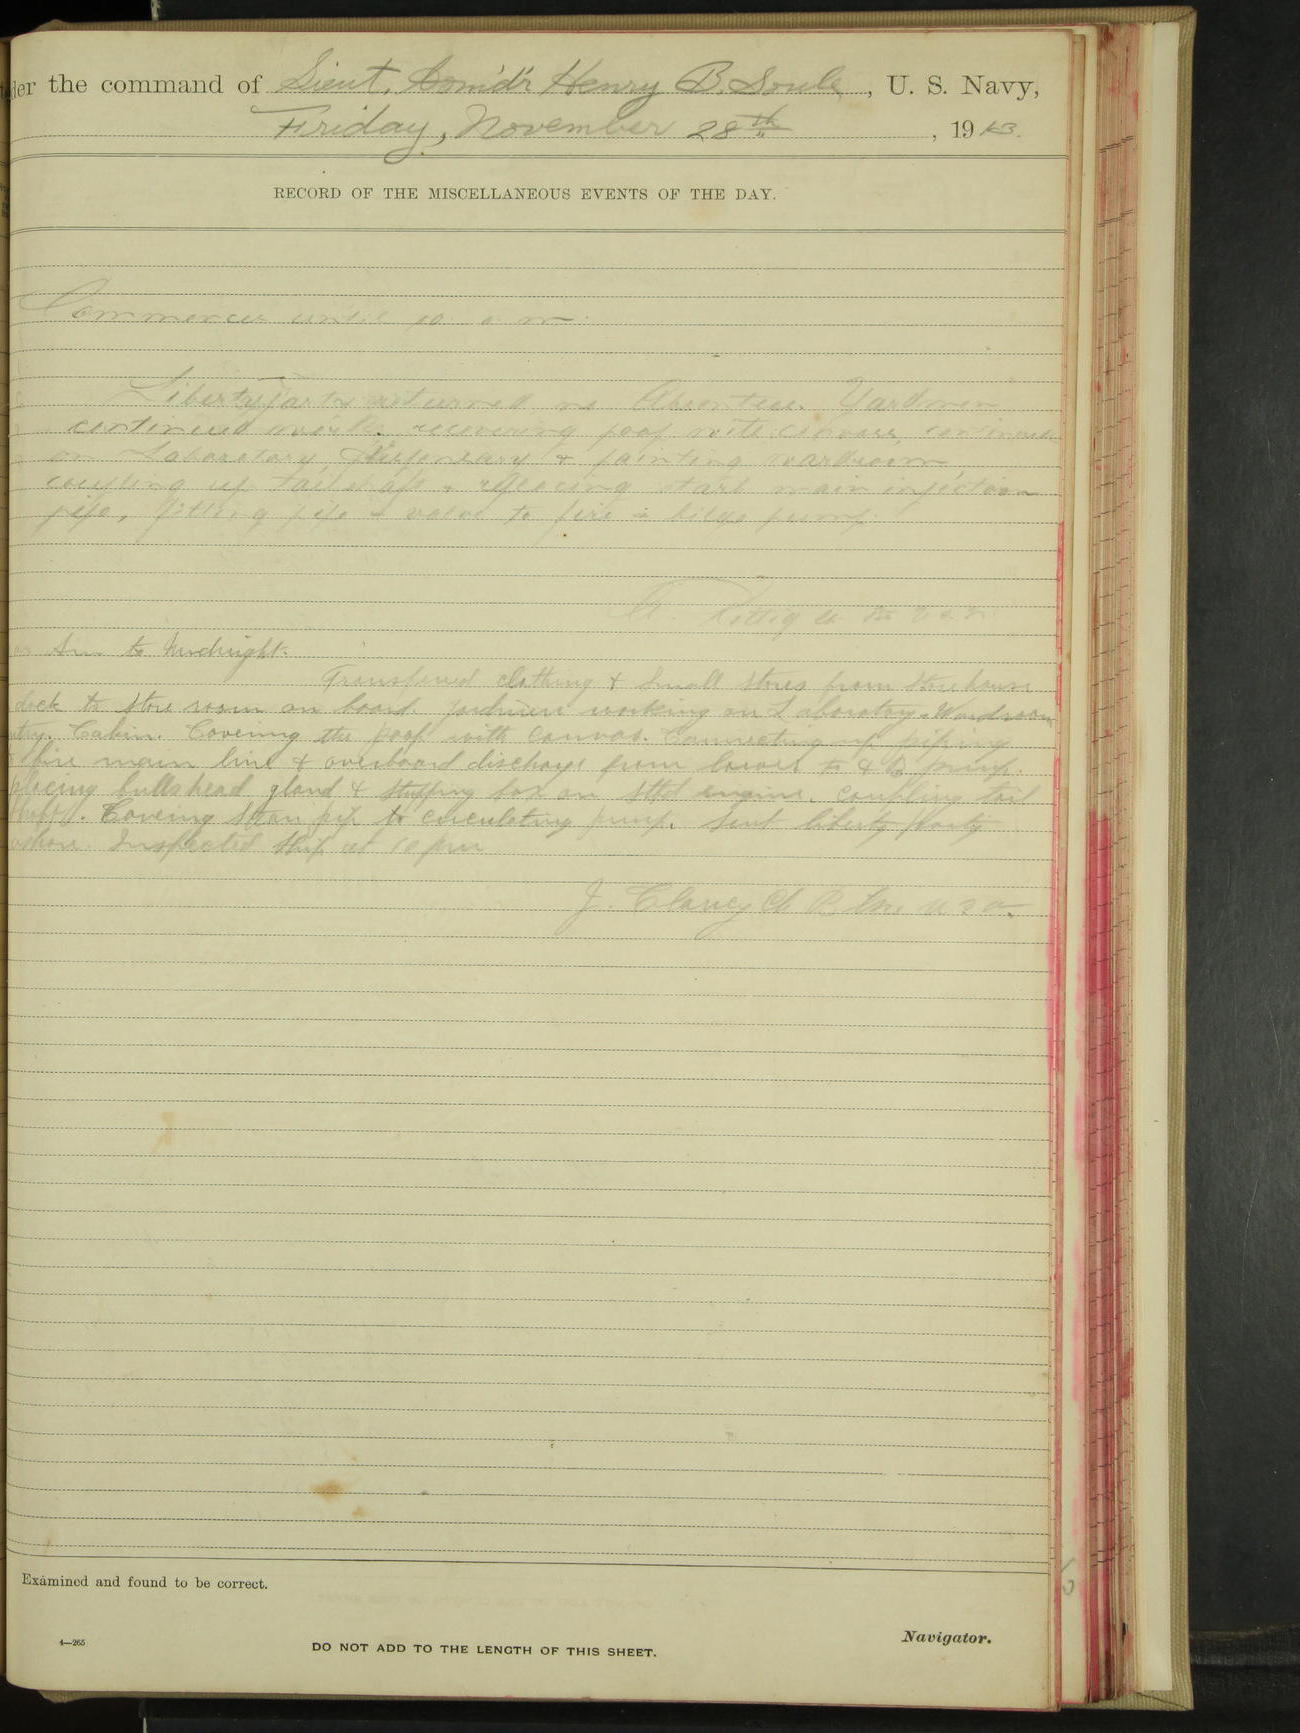 der the command of Lieut. Com'd'r Henry B. Soule, U. S. Navy,
Friday, November 28th, 1913.
RECORD OF THE MISCELLANEOUS EVENTS OF THE DAY.
Commences until 10 a m.
Liberty party returned no Absentees. Yardmen
continued work, recovering poop with canvas, continued
on Laboratory, Dispensary & painting wardroom,
coupling up tail shaft & replacing starb main injection
pipe, fitting pipe & valve to fire & bilge pump.
A
to Midnight.
Transferred clothing & small stores from storehouse
dock to store room on board. Yardmen working on Laboratory, Wardroom
ntry. Cabin. Covering the poop with canvas. Connecting up piping
fire main line & overboard discharge from lower to F & B pump.
placing bulkhead gland & stuffing box on engine. Coupling tail
shaft. Covering steam pipe to circulating pump. Sent liberty party
ashore. Inspected ship at 10 pm
J. Clancy Ch B
Examined and found to be correct.
4—265
DO NOT ADD TO THE LENGTH OF THIS SHEET.
Navigator.